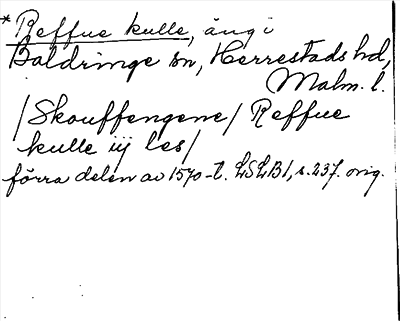 * Reffue kulle, äng i
Baldringe sn, Herrestads hd,
Malm. l.
/Skouffengene/ Reffue
kulle iij les/
förra delen av 1570-t. LSLB1, s. 237. orig.